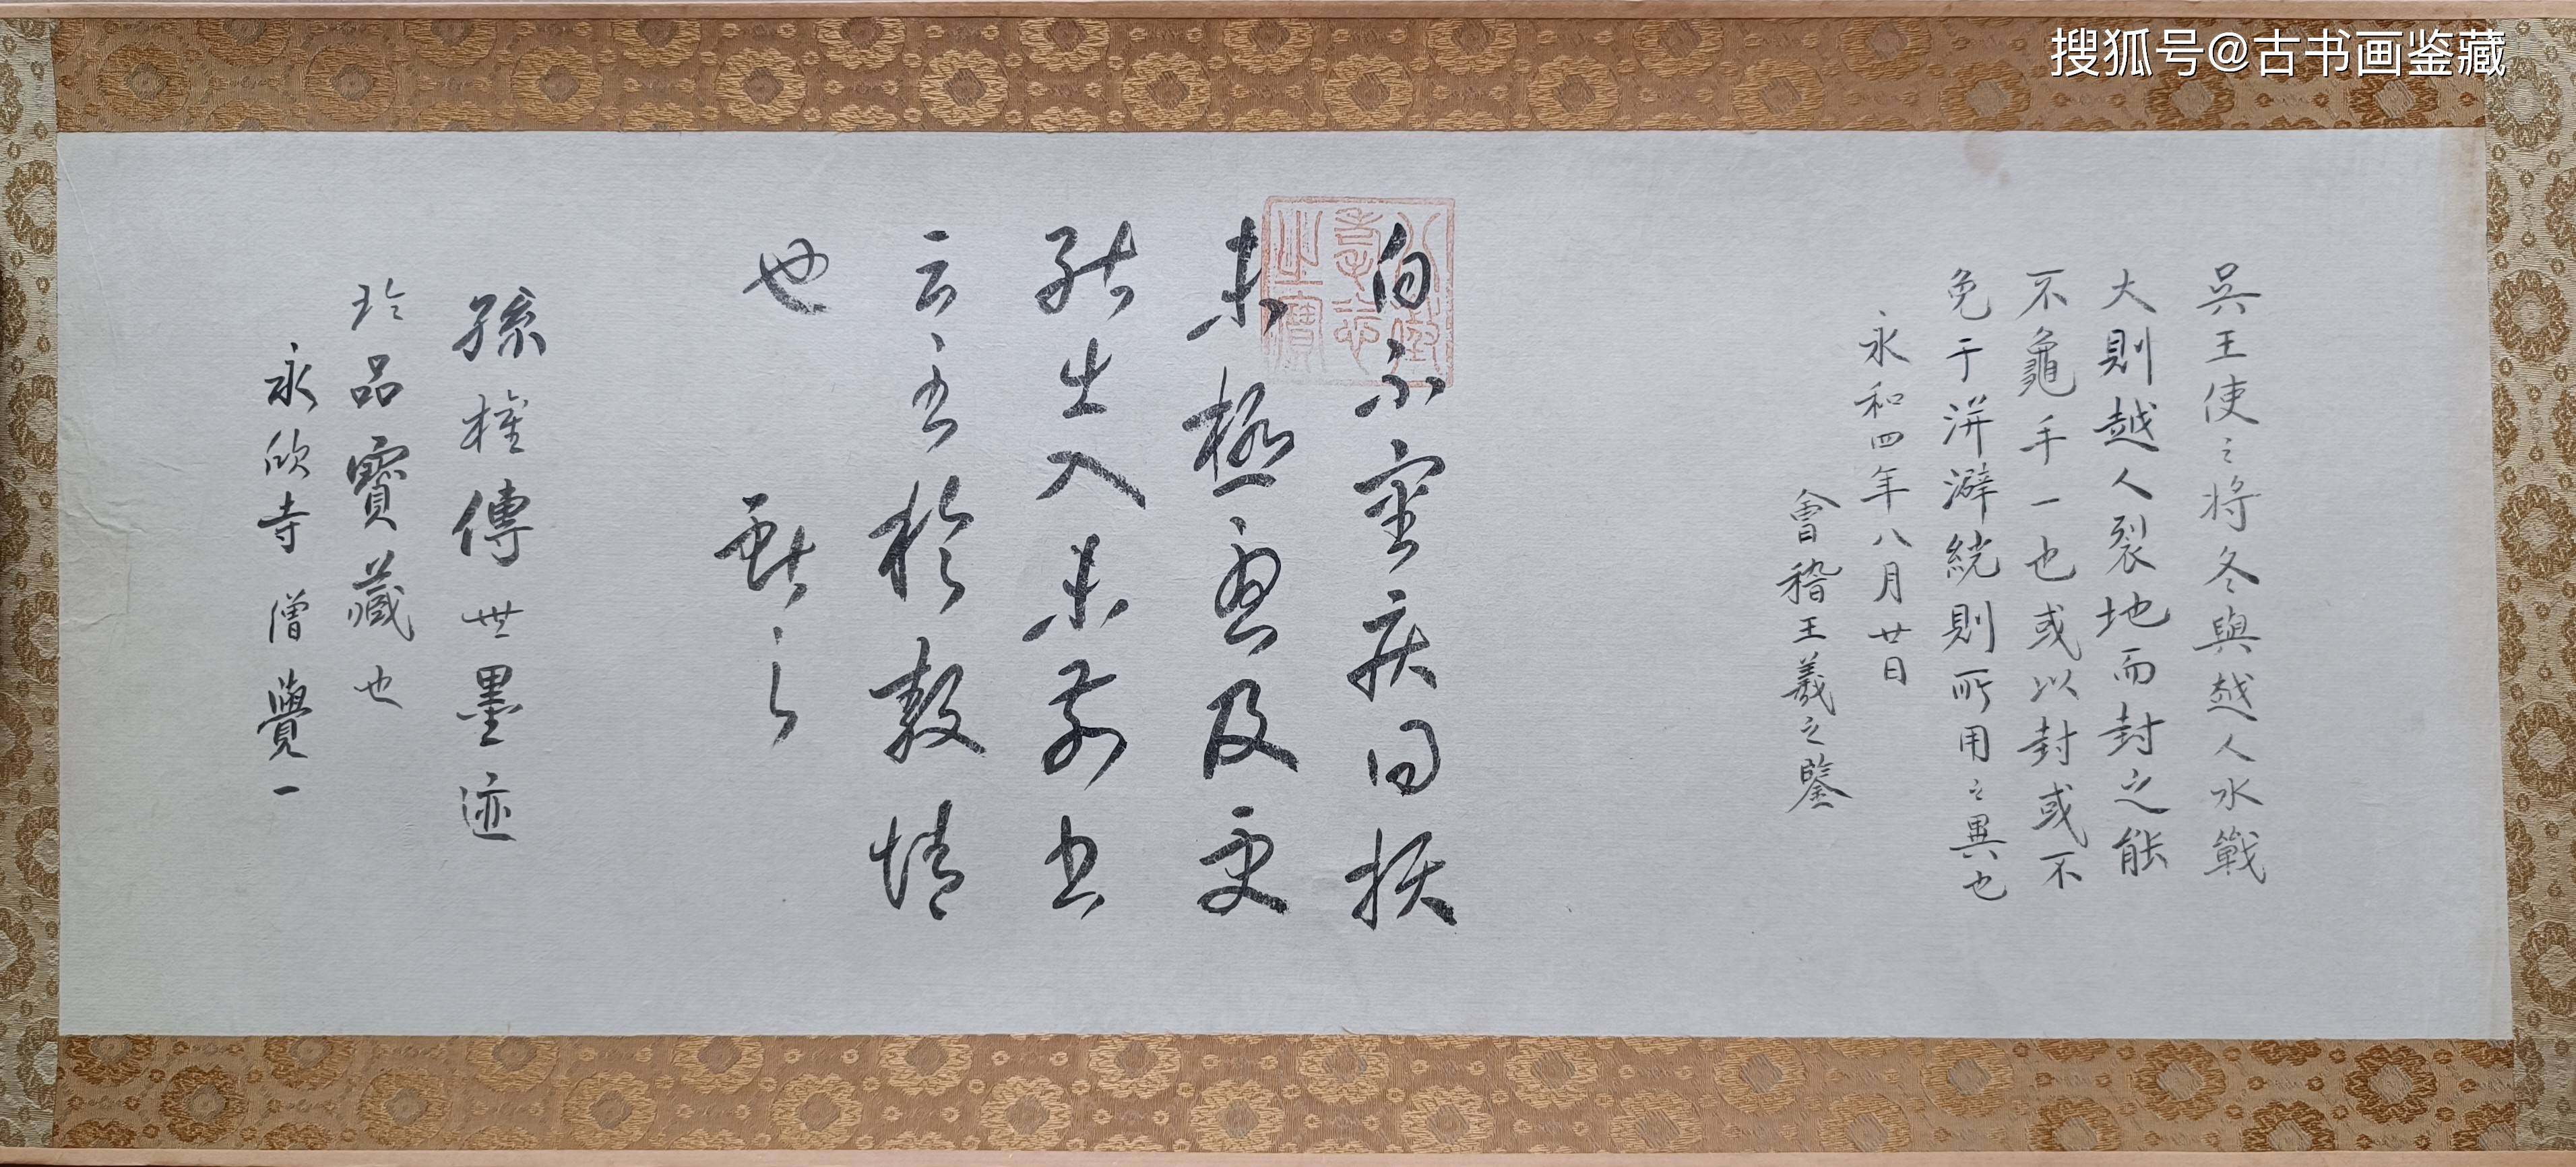 搜狐号@古书画鉴藏
吳王使之將冬與越人水戰
大則越人裂地而封之能
不龜手一也或以封或不
免于洴澼絖則所用之異也
永和四年八月廿日
會稽王羲之鑒
白不審疾同扶
未極血及更
能出入未前書
云至於數情
也
孫權傳世墨迹
珍品寶藏也
永欣寺僧覺一